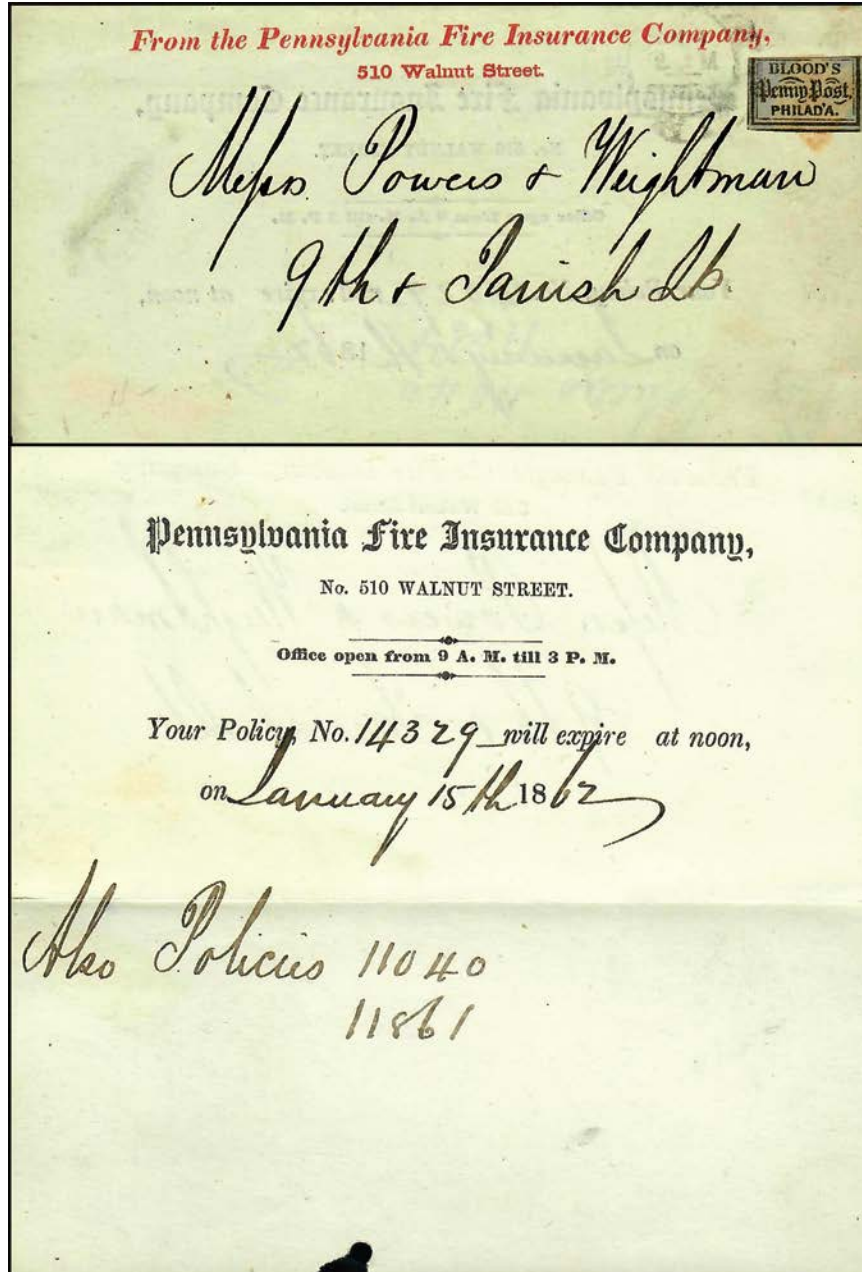 From the Pennsylvania Fire Insurance Company,
510 Walnut Street.
BLOOD'S
Penny Post,
PHILAD'A.
Messrs Powers & Weightman
9th & Parrish Sts.
Pennsylvania Fire Insurance Company,
No. 510 WALNUT STREET.
Office open from 9 A. M. till 3 P. M.
Your Policy, No. 14329 will expire at noon,
on January 15th 1862
Also Policies 11040
11861